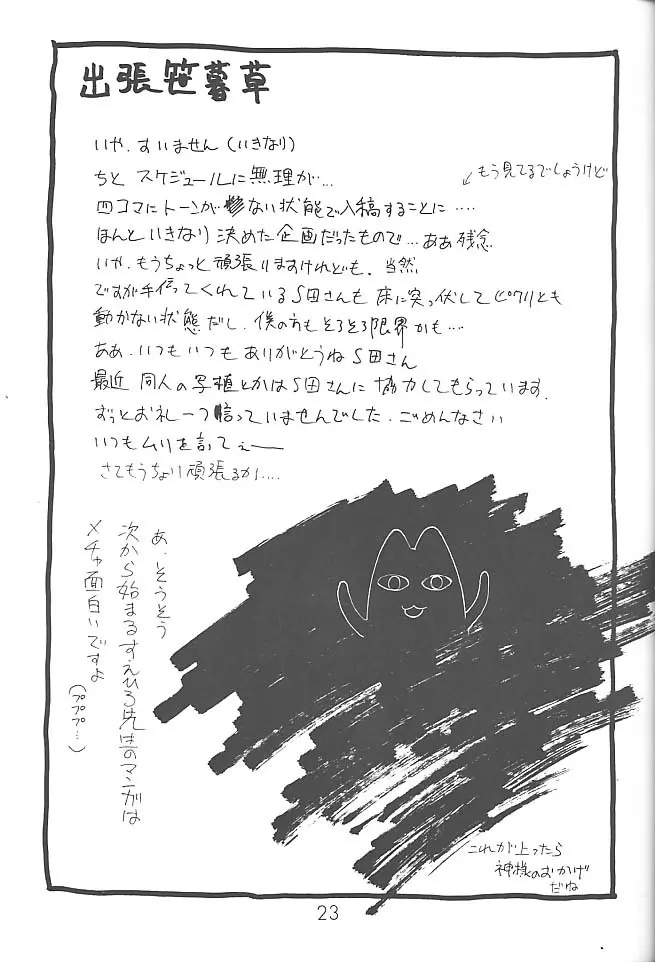 出張笹暮草
いや、すいません(いきなり)
ちと スケジュールに無理が…
↙もう見てるでしょうけど
四コマにトーンが ない状態で入稿することに‥‥
ほんと いきなり 決めた企画だったもので…ああ残念
いや、もうちょっと頑張りますけれども、当然
ですが手伝ってくれているS田さんも 床に突っ伏してピクリとも
動かない状態だし、僕の方もそろそろ限界かも…
ああ、いつもいつも ありがとうねS田さん
最近 同人の写植とかはS田さんに協力してもらっています。
ずっとお礼一つ言っていませんでした、ごめんなさい
いつもムリを言ってぇ――
さてもうちょい頑張るか‥‥
あ、そうそう
次から始まるすえひろ先生のマンガは
メチャ面白いですよ
(プププ…)
これが上ったら
神様のおかげ
だね
23